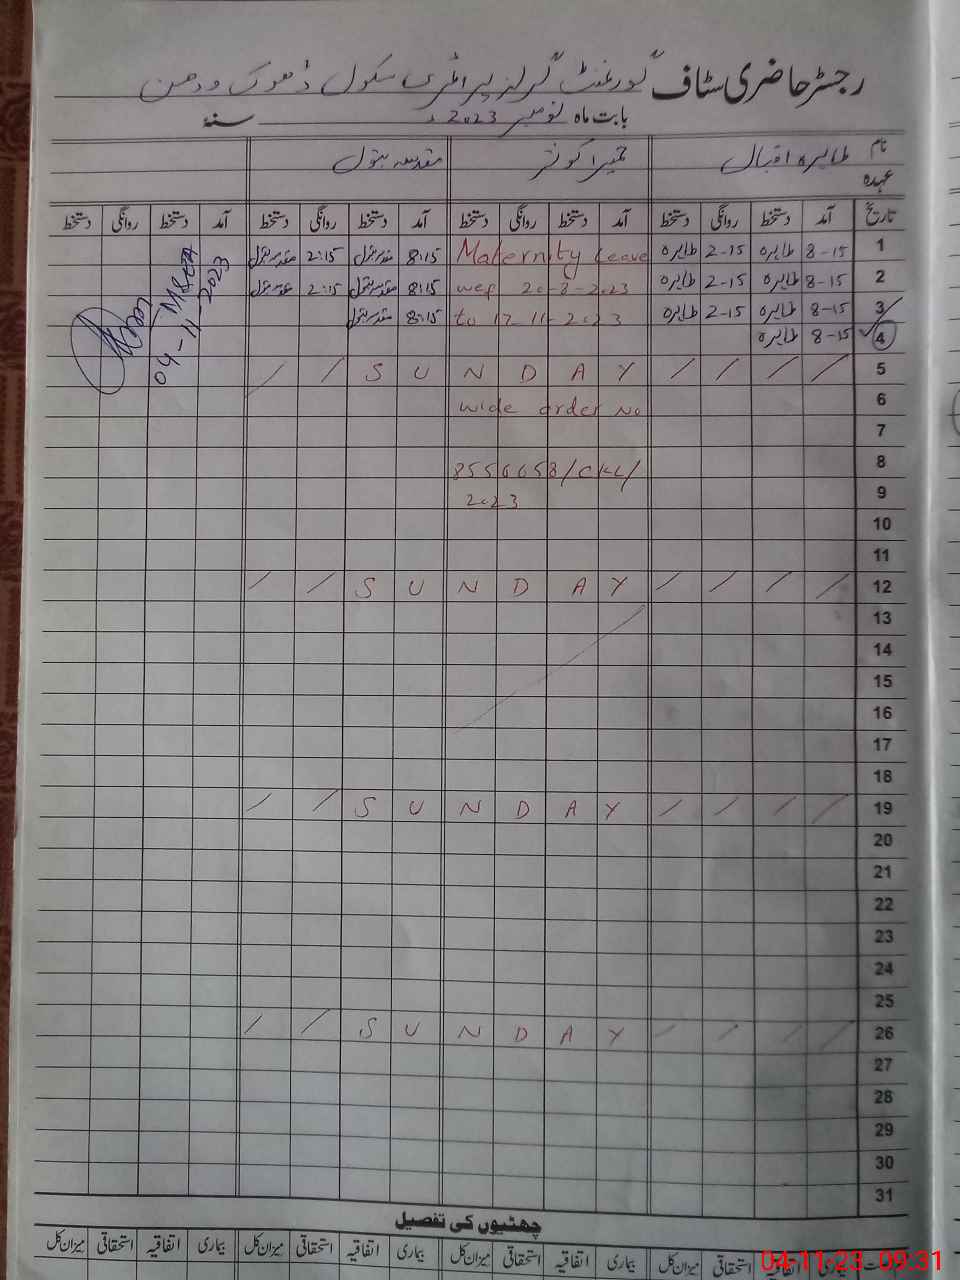 رجسٹر حاضری سٹاف گورنمنٹ گرلز پرائمری سکول ڈھوک ودھن
بابت ماہ نومبر 2023ء سنۃ
نام طاہرہ اقبال حمیرا کوثر مقدسہ بتول
عہدہ
تاریخ آمد دستخط روانگی دستخط آمد دستخط روانگی دستخط آمد دستخط روانگی دستخط آمد دستخط روانگی دستخط
1 8-15 طاہرہ 2-15 طاہرہ Maternity leave 8:15 مقدسہ بتول 2:15 مقدسہ بتول
2 8-15 طاہرہ 2-15 طاہرہ wef 20-8-2023 8:15 مقدسہ بتول 2:15 مقدسہ بتول
3 8-15 طاہرہ 2-15 طاہرہ to 17-11-2023 8:15 مقدسہ بتول
4 8-15 طاہرہ
MEA
04-11-2023
5 / / S U N D A Y / / / /
6 wide order No
7
8 8556658/CKL/
9 2023
10
11
12 / / S U N D A Y / / / /
13
14
15
16
17
18
19 / / S U N D A Y / / / /
20
21
22
23
24
25
26 / / S U N D A Y / / / /
27
28
29
30
31
چھٹیوں کی تفصیل
بیماری اتفاقیہ استحقاقی میزان کل بیماری اتفاقیہ استحقاقی میزان کل بیماری اتفاقیہ استحقاقی میزان کل بیماری اتفاقیہ استحقاقی میزان کل
04-11-23 09:31